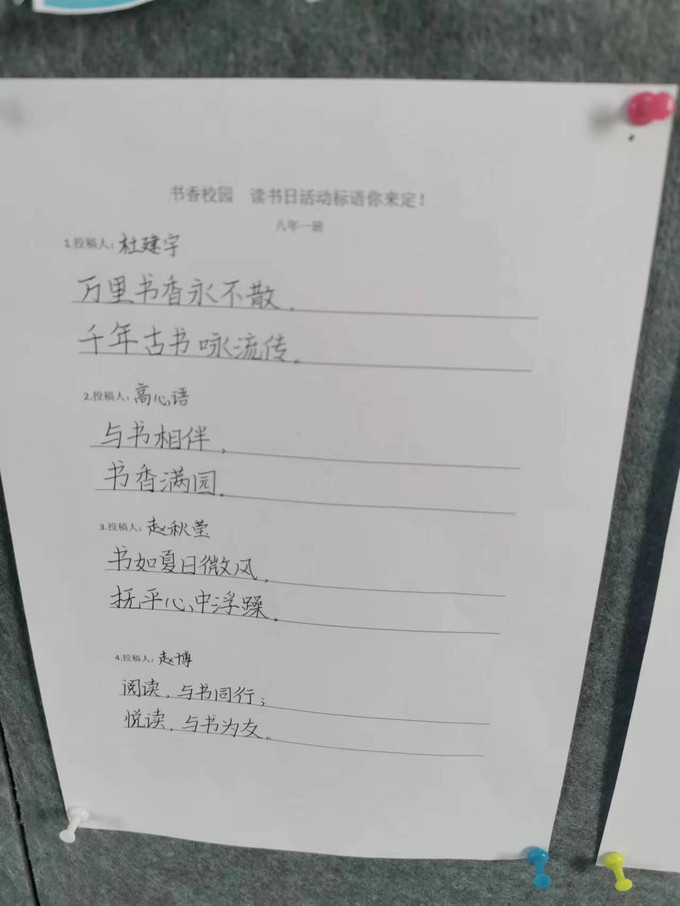 书香校园　读书日活动标语你来定！
八年一班
1.投稿人：杜建宇
万里书香永不散，
千年古书咏流传。
2.投稿人：高心语
与书相伴，
书香满园。
3.投稿人：赵秋莹
书如夏日微风，
抚平心中浮躁。
4.投稿人：赵博
阅读，与书同行；
悦读，与书为友。